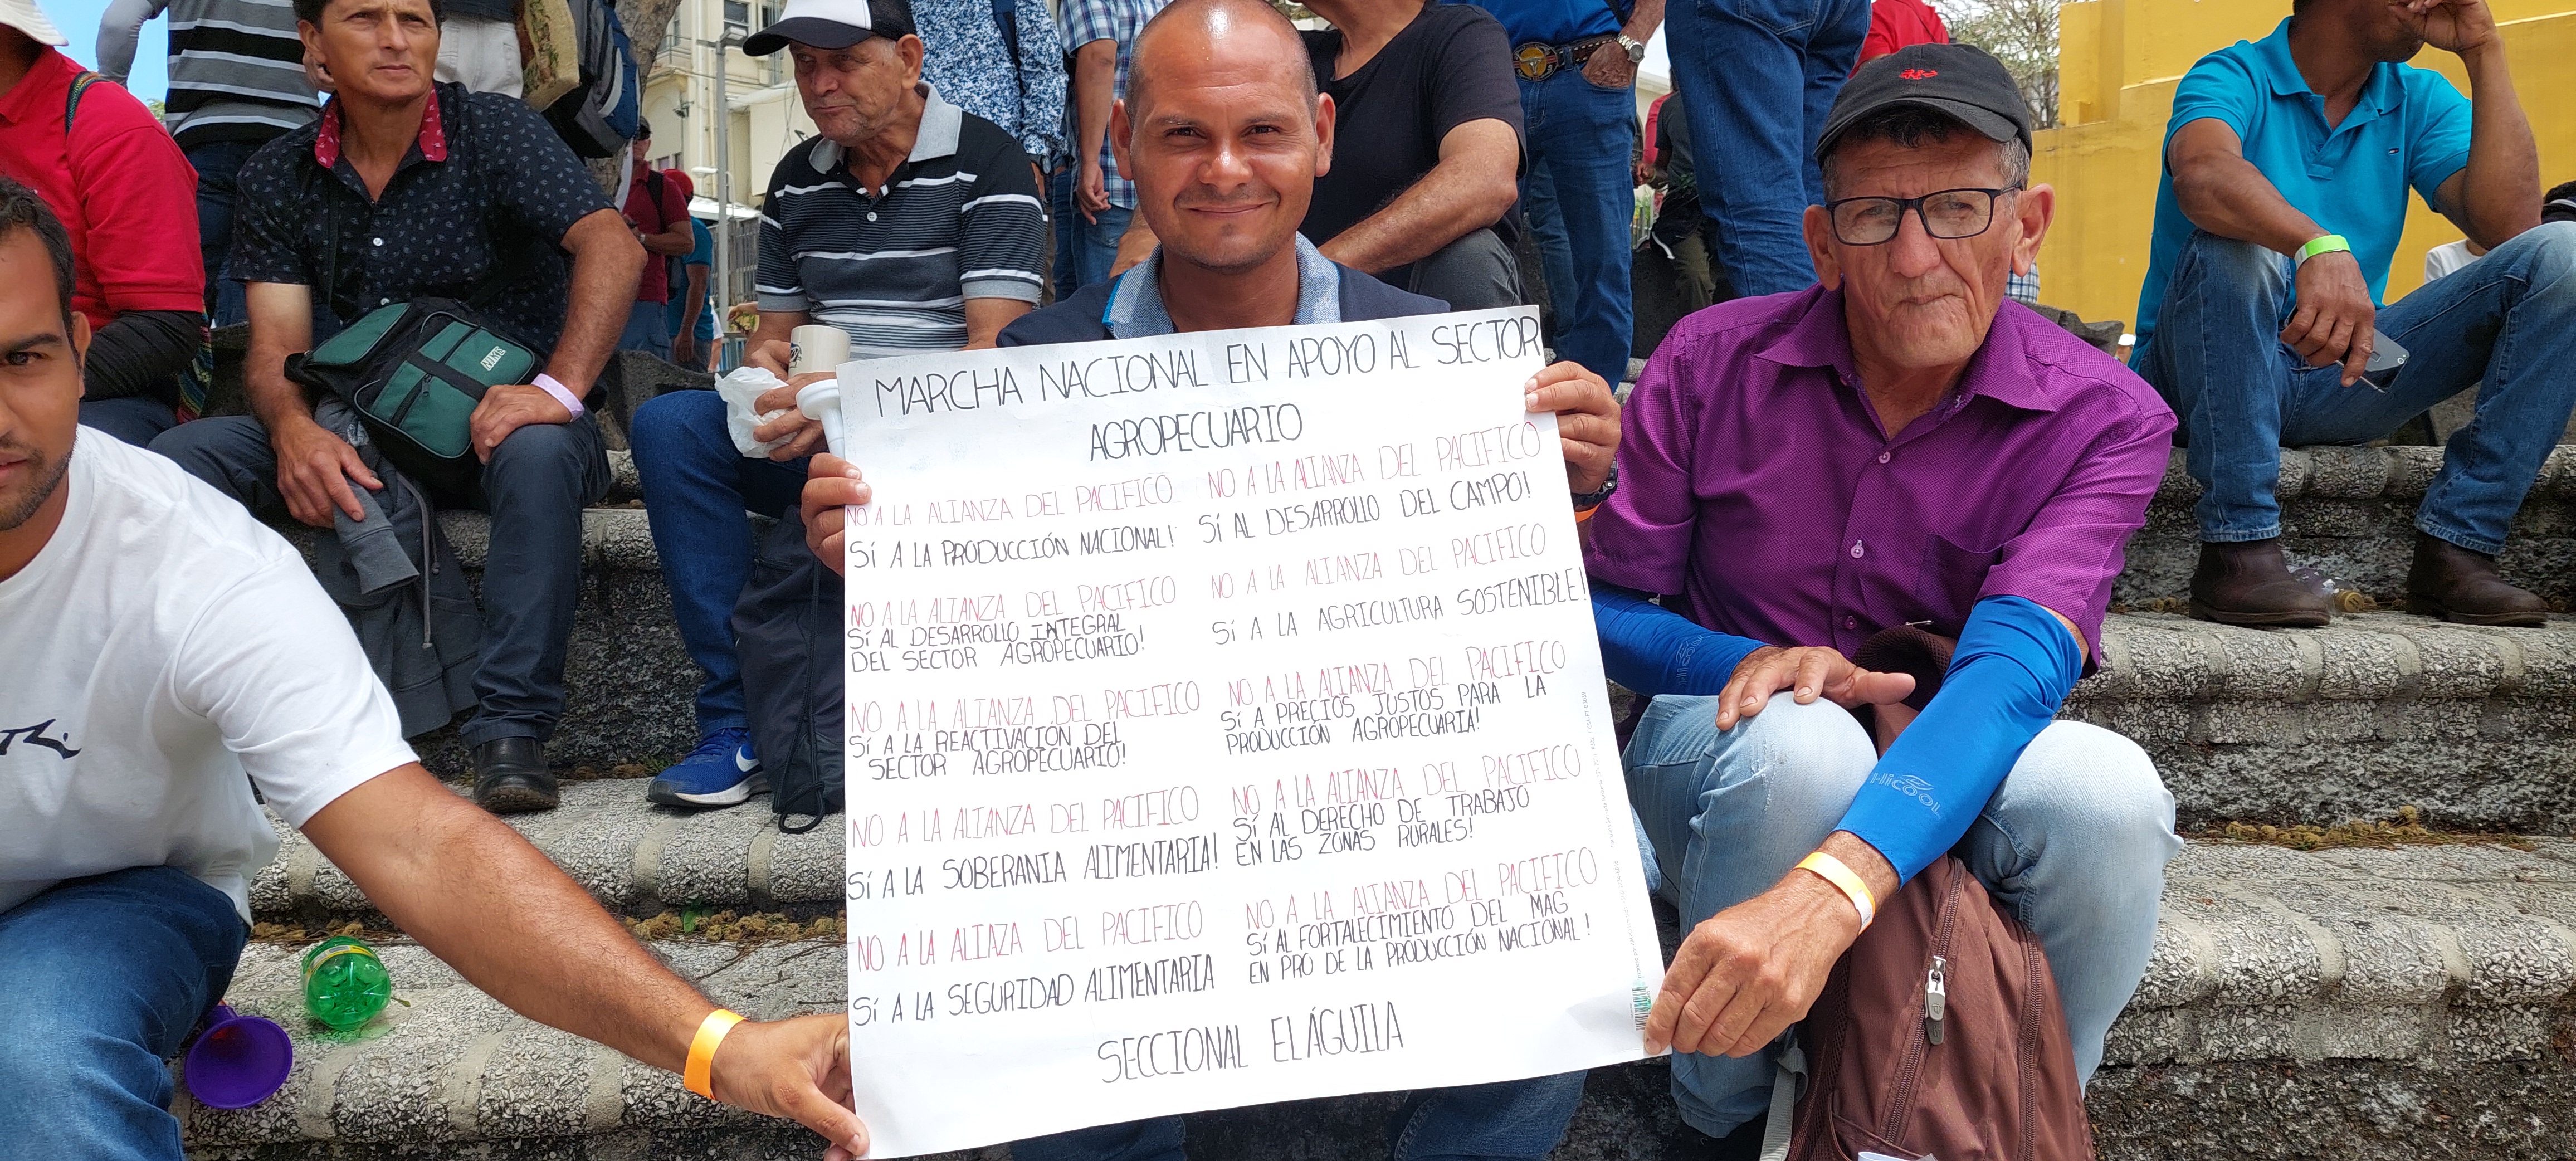 MARCHA NACIONAL EN APOYO AL SECTOR
AGROPECUARIO
NO A LA ALIANZA DEL PACIFICO
SÍ A LA PRODUCCIÓN NACIONAL!
NO A LA ALIANZA DEL PACIFICO
SÍ AL DESARROLLO INTEGRAL
DEL SECTOR AGROPECUARIO!
NO A LA ALIANZA DEL PACIFICO
SÍ A LA REACTIVACION DEL
SECTOR AGROPECUARIO!
NO A LA ALIANZA DEL PACIFICO
SÍ A LA SOBERANIA ALIMENTARIA!
NO A LA ALIAZA DEL PACIFICO
SÍ A LA SEGURIDAD ALIMENTARIA
NO A LA ALIANZA DEL PACIFICO
SÍ AL DESARROLLO DEL CAMPO!
NO A LA ALIANZA DEL PACIFICO
SÍ A LA AGRICULTURA SOSTENIBLE!
NO A LA ALIANZA DEL PACIFICO
SÍ A PRECIOS JUSTOS PARA LA
PRODUCCIÓN AGROPECUARIA!
NO A LA ALIANZA DEL PACIFICO
SÍ AL DERECHO DE TRABAJO
EN LAS ZONAS RURALES!
NO A LA ALIANZA DEL PACIFICO
SÍ AL FORTALECIMIENTO DEL MAG
EN PRO DE LA PRODUCCIÓN NACIONAL!
SECCIONAL EL ÁGUILA
HiCOOL